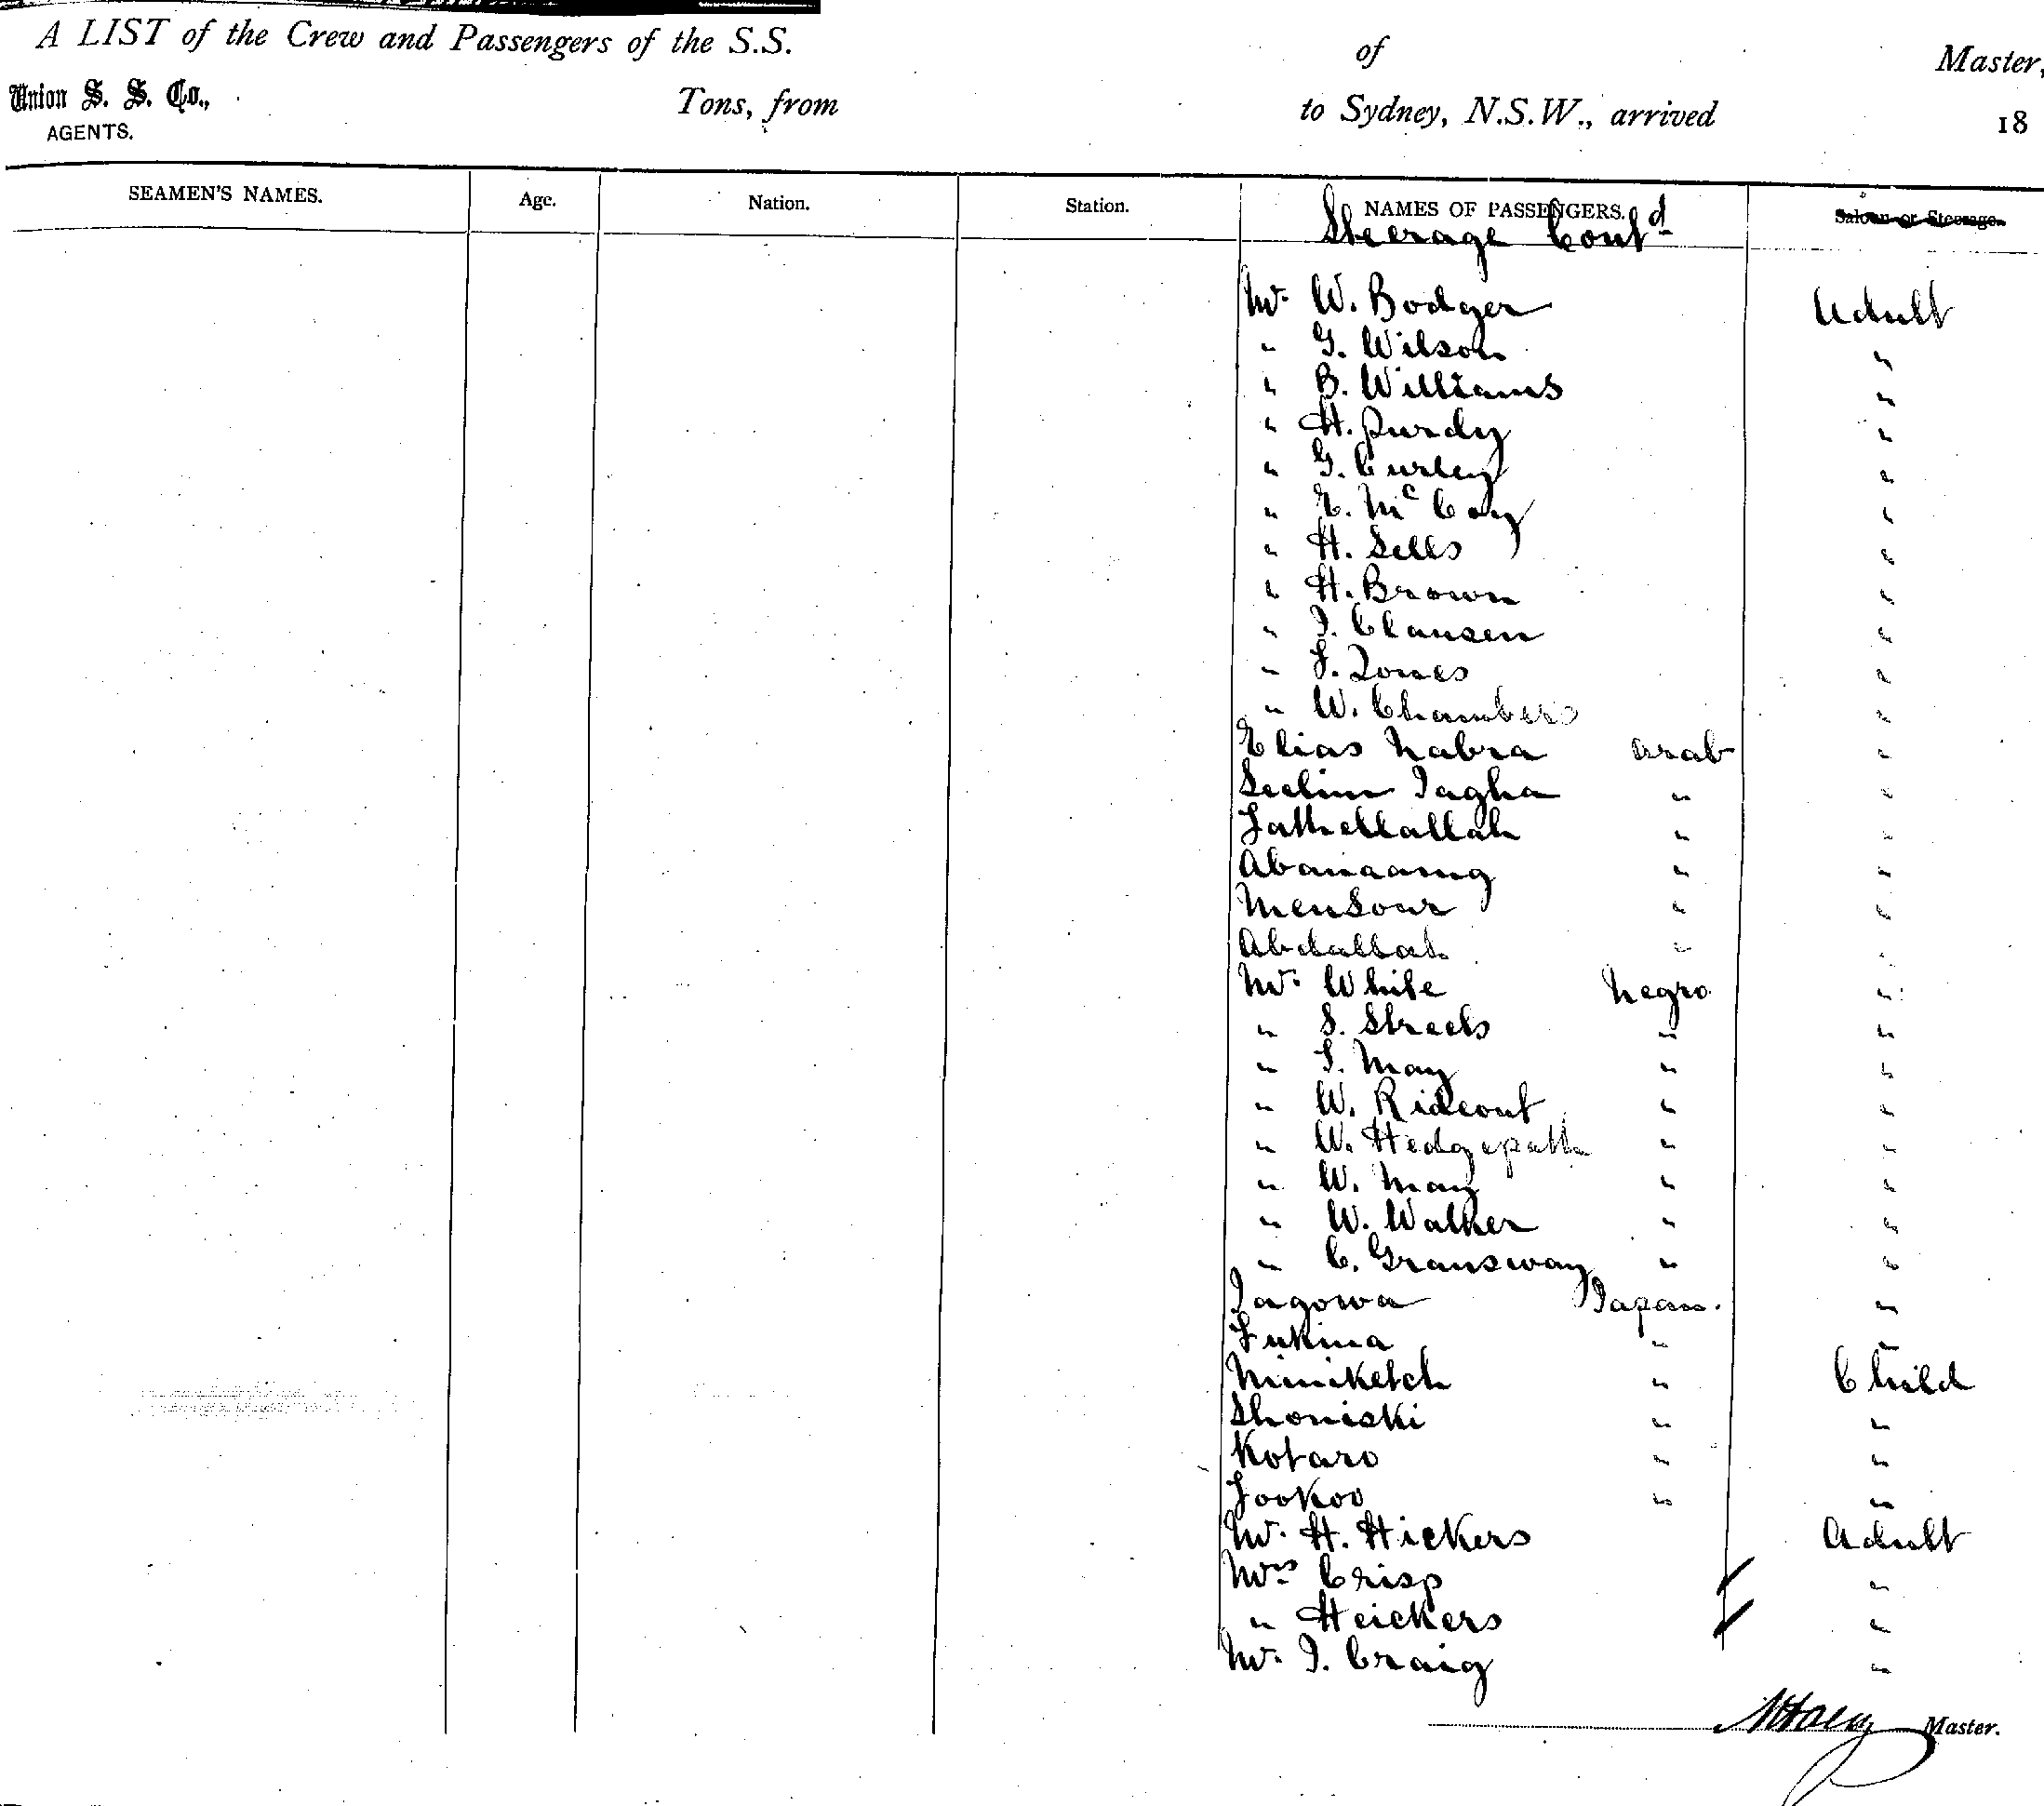 A LIST of the Crew and Passengers of the S.S. of Master,
Union S. S. Co., Tons, from to Sydney, N.S.W., arrived 18
AGENTS.
SEAMEN'S NAMES. Age. Nation. Station. NAMES OF PASSENGERS. Saloon or Steerage.
Steerage Contd
Mr W. Bodger Adult
" G. Wilson "
" B. Williams "
" H. Purdy "
" G. Curley "
" E. McCay "
" H. Sells "
" H. Brown "
" J. Clausen "
" F. Jones "
" W. Chambers "
Elias Nabra Arab "
Seelim Tagha " "
Fathellallah " "
Abanaamy " "
Mensour " "
Abdallah " "
Mr White Negro "
" S. Streets " "
" T. May " "
" W. Rideout " "
" W. Hedgepath " "
" W. May " "
" W. Walker " "
" C. Gransway " "
Tagowa Japan. "
Fukina " "
Niniketch " Child
Shoniski " "
Kotaro " "
Fookoo " "
Mr H. Hickers Adult
Mrs Crisp "
" Heickers "
Mr J. Craig "
Master.